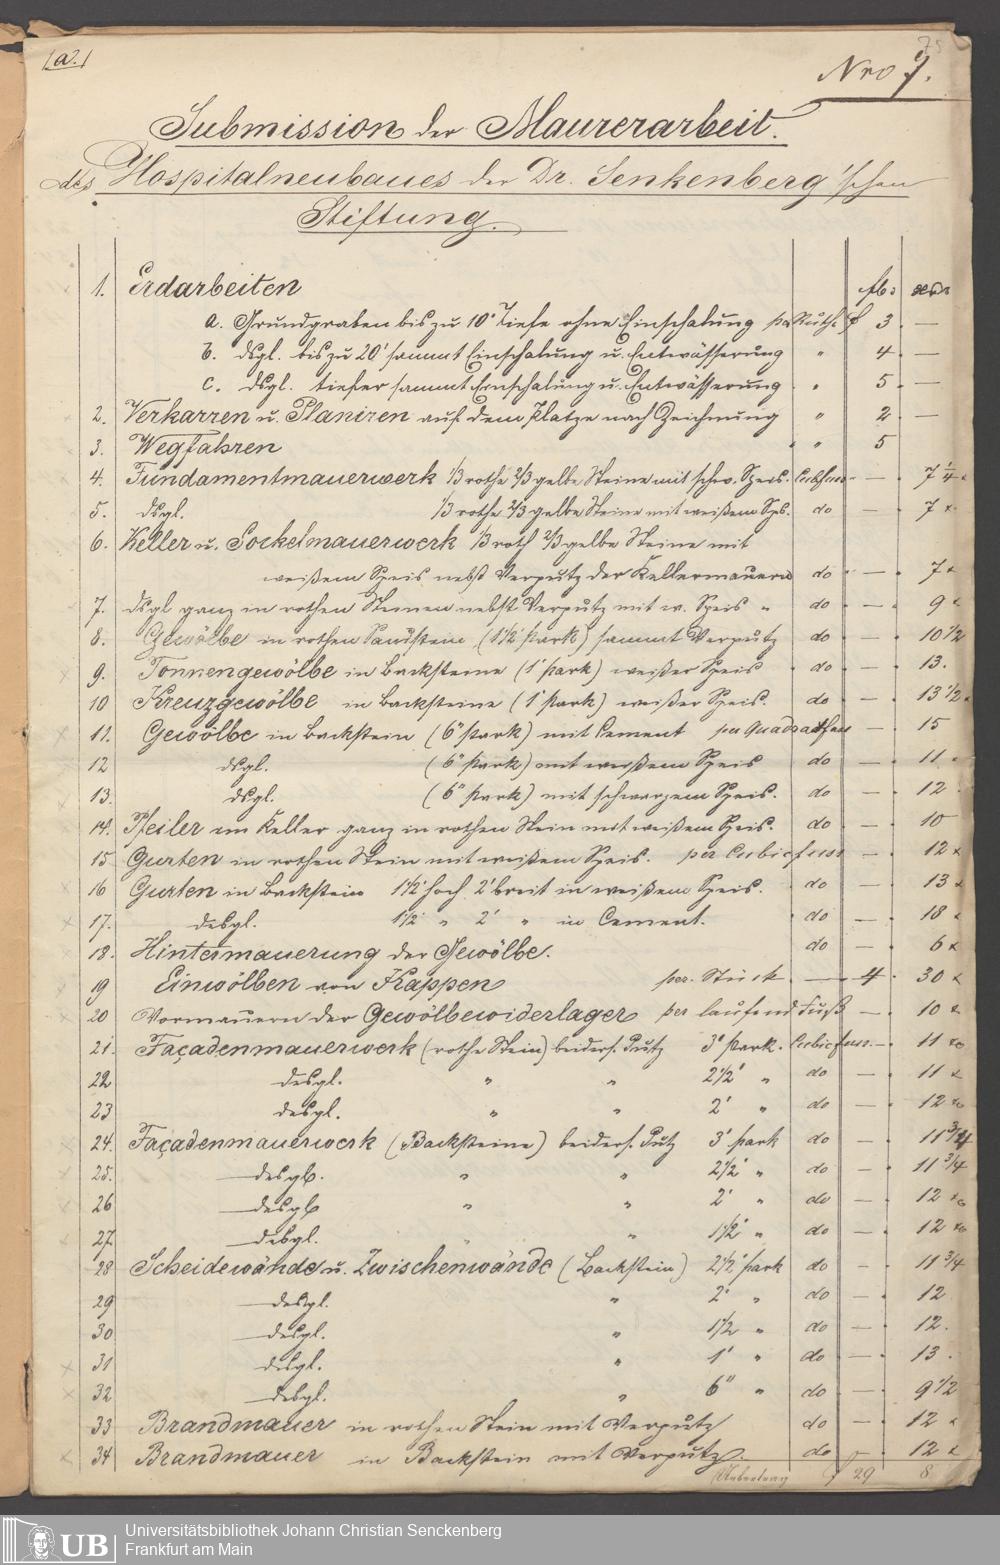 (a.)
75
Nro 7.
Submission der Maurerarbeit.
des Hospitalneubaues der Dr. Senkenberg'schen
Stiftung.
fl. xr.
1. Erdarbeiten
a. Grundgraben bis zu 10' Tiefe ohne Einschalung per Ruth. f 3. —
b. dsgl. bis zu 20' sammt Einschalung u. Entwässerung " 4. —
c. dsgl. tiefer sammt Einschalung u. Entwässerung " 5. —
2. Verkarren u. Planiren auf dem Platze nach Zeichnung " 2. —
3. Wegfahren " " 5
4. Fundamentmauerwerk 1/3 rothe 2/3 gelbe Steine mit schw. Speis. Cubfuss — 7 1/4 x
5. dsgl. 1/3 rothe 2/3 gelbe Steine mit weißem Sps. do — 7 x
6. Keller u. Sockelmauerwerk 1/3 roth 2/3 gelbe Steine mit
weißem Speis nebst Verputz der Kellermauern do — 7 x
7. dsgl ganz in rothen Steinen nebst Verputz mit w. Speis " do — 9 x
8. Gewölbe in rothen Sandstein (1 1/2' stark) sammt Verputz do — 10 1/2
9. Tonnengewölbe in Backsteine (1' stark) weißer Speis do — 13.
10 Kreuzgewölbe in Backsteine (1' stark) weißer Speis. do — 13 1/2 x
11. Gewölbe in Backstein (6" stark) mit Cement per Quadratfuss — 15
12 dsgl. (6" stark) mit weißem Speis do — 11 .
13. dsgl. (6" stark) mit schwarzem Speis. do — 12 .
14. Pfeiler im Keller ganz in rothen Stein mit weißem Speis. do — 10
15 Gurten in rothen Stein mit weißem Speis. per Cubicfuss — 12 x
16 Gurten in Backstein 1 1/2' hoch 2' breit in weißem Speis. do — 13 x
17. desgl. 1 1/2 " 2' " in Cement. do — 18 x
18. Hintermauerung der Gewölbe. do — 6 x
19 Einwölben von Kappen per Stück. — 4. 30 x
20 Vormauern der Gewölbewiderlager per laufend Fuß — 10 x
21. Façadenmauerwerk (rothe Stein) beiders. Putz 3' stark. Cubicfuss. — 11 xr
22 desgl. " " 2 1/2' " do — 11 x
23 desgl. " " 2' " do — 12 xr
24. Façadenmauerwerk (Backsteine) beiders. Putz 3' stark do — 11 3/4
25. desgl. " " 2 1/2' " do — 11 3/4
26 desgl " " 2' " do — 12 xr
27 desgl. " 1 1/2' " do — 12 xr
28 Scheidewände u. Zwischenwände (Backstein) 2 1/2' stark do — 11 3/4
29 desgl. " 2' " do — 12
30 desgl. " 1 1/2 " do — 12.
31 desgl. " 1' " do — 13 .
32 desgl. " 6" " do — 9 1/2
33 Brandmauer in rothen Stein mit Verputz do — 12 x
34 Brandmauer in Backstein mit Verputz. do — 12 x
Uebertrag f 29 8
UB
Universitätsbibliothek Johann Christian Senckenberg
Frankfurt am Main